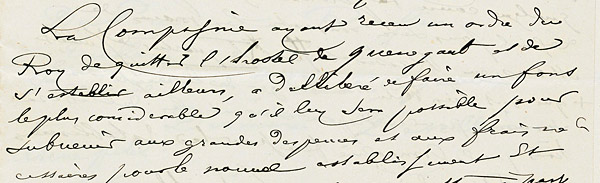 La Compagnie ayant receu un ordre du
Roy de quitter l'hostel de Guenegaut et de
s'establir ailleurs, a deliberé de faire un fons
le plus considerable qu'il luy sera possible pour
subvenir aux grandes despences et aux frais ne-
cessaires pour le nouvel establissement Et